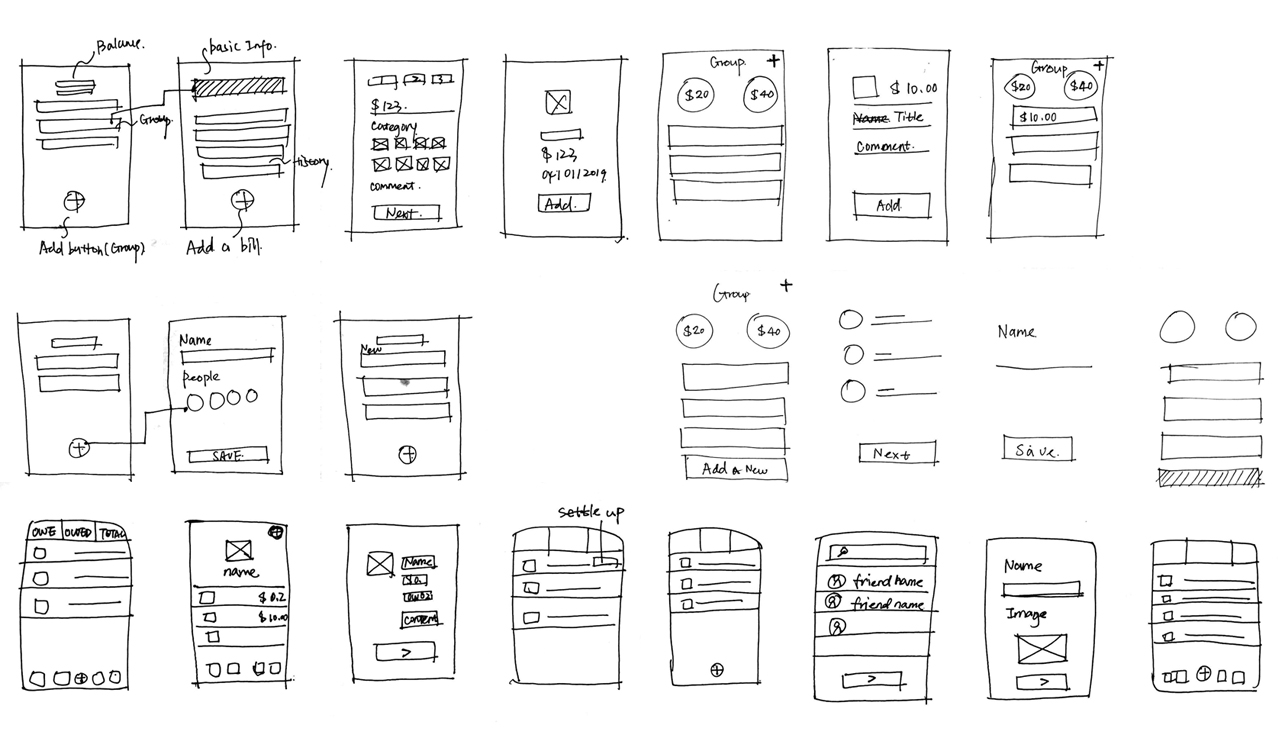 Balance.
basic Info.
Group
History
Add button (Group)
Add a bill.
1 2 3
$123.
Category
comment.
Next.
$123
04/01/2019
Add.
Group. +
$20 $40
$10.00
Name Title
Comment.
Add.
Group +
$20 $40
$10.00
Name
People
SAVE.
New
Group +
$20 $40
Add a New
Next
Name
Save.
OWE OWED TOTAL
name
$0.2
$10.00
Name
content
>
settle up
friend name
friend name
>
Name
Image
>